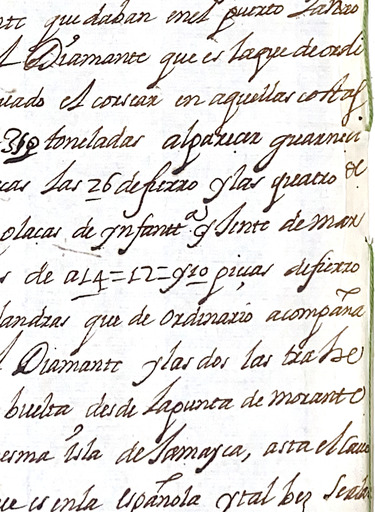 nte que daban en el puerto
l Diamante que es la que de ordi
uado el corsear en aquellas costas
350 toneladas al parecer guarneci
cas las 26 de fierro y las quatro de
placas de ynfantt.a y Jente de mar
s de a 14=12=y 10 pieças de fierro
landras que de ordinario acompaña
l Diamante y las dos las trahe
buelta desde la punta de morante
esma isla de Jamayca, asta el cavo
ue es en la española y tal bez